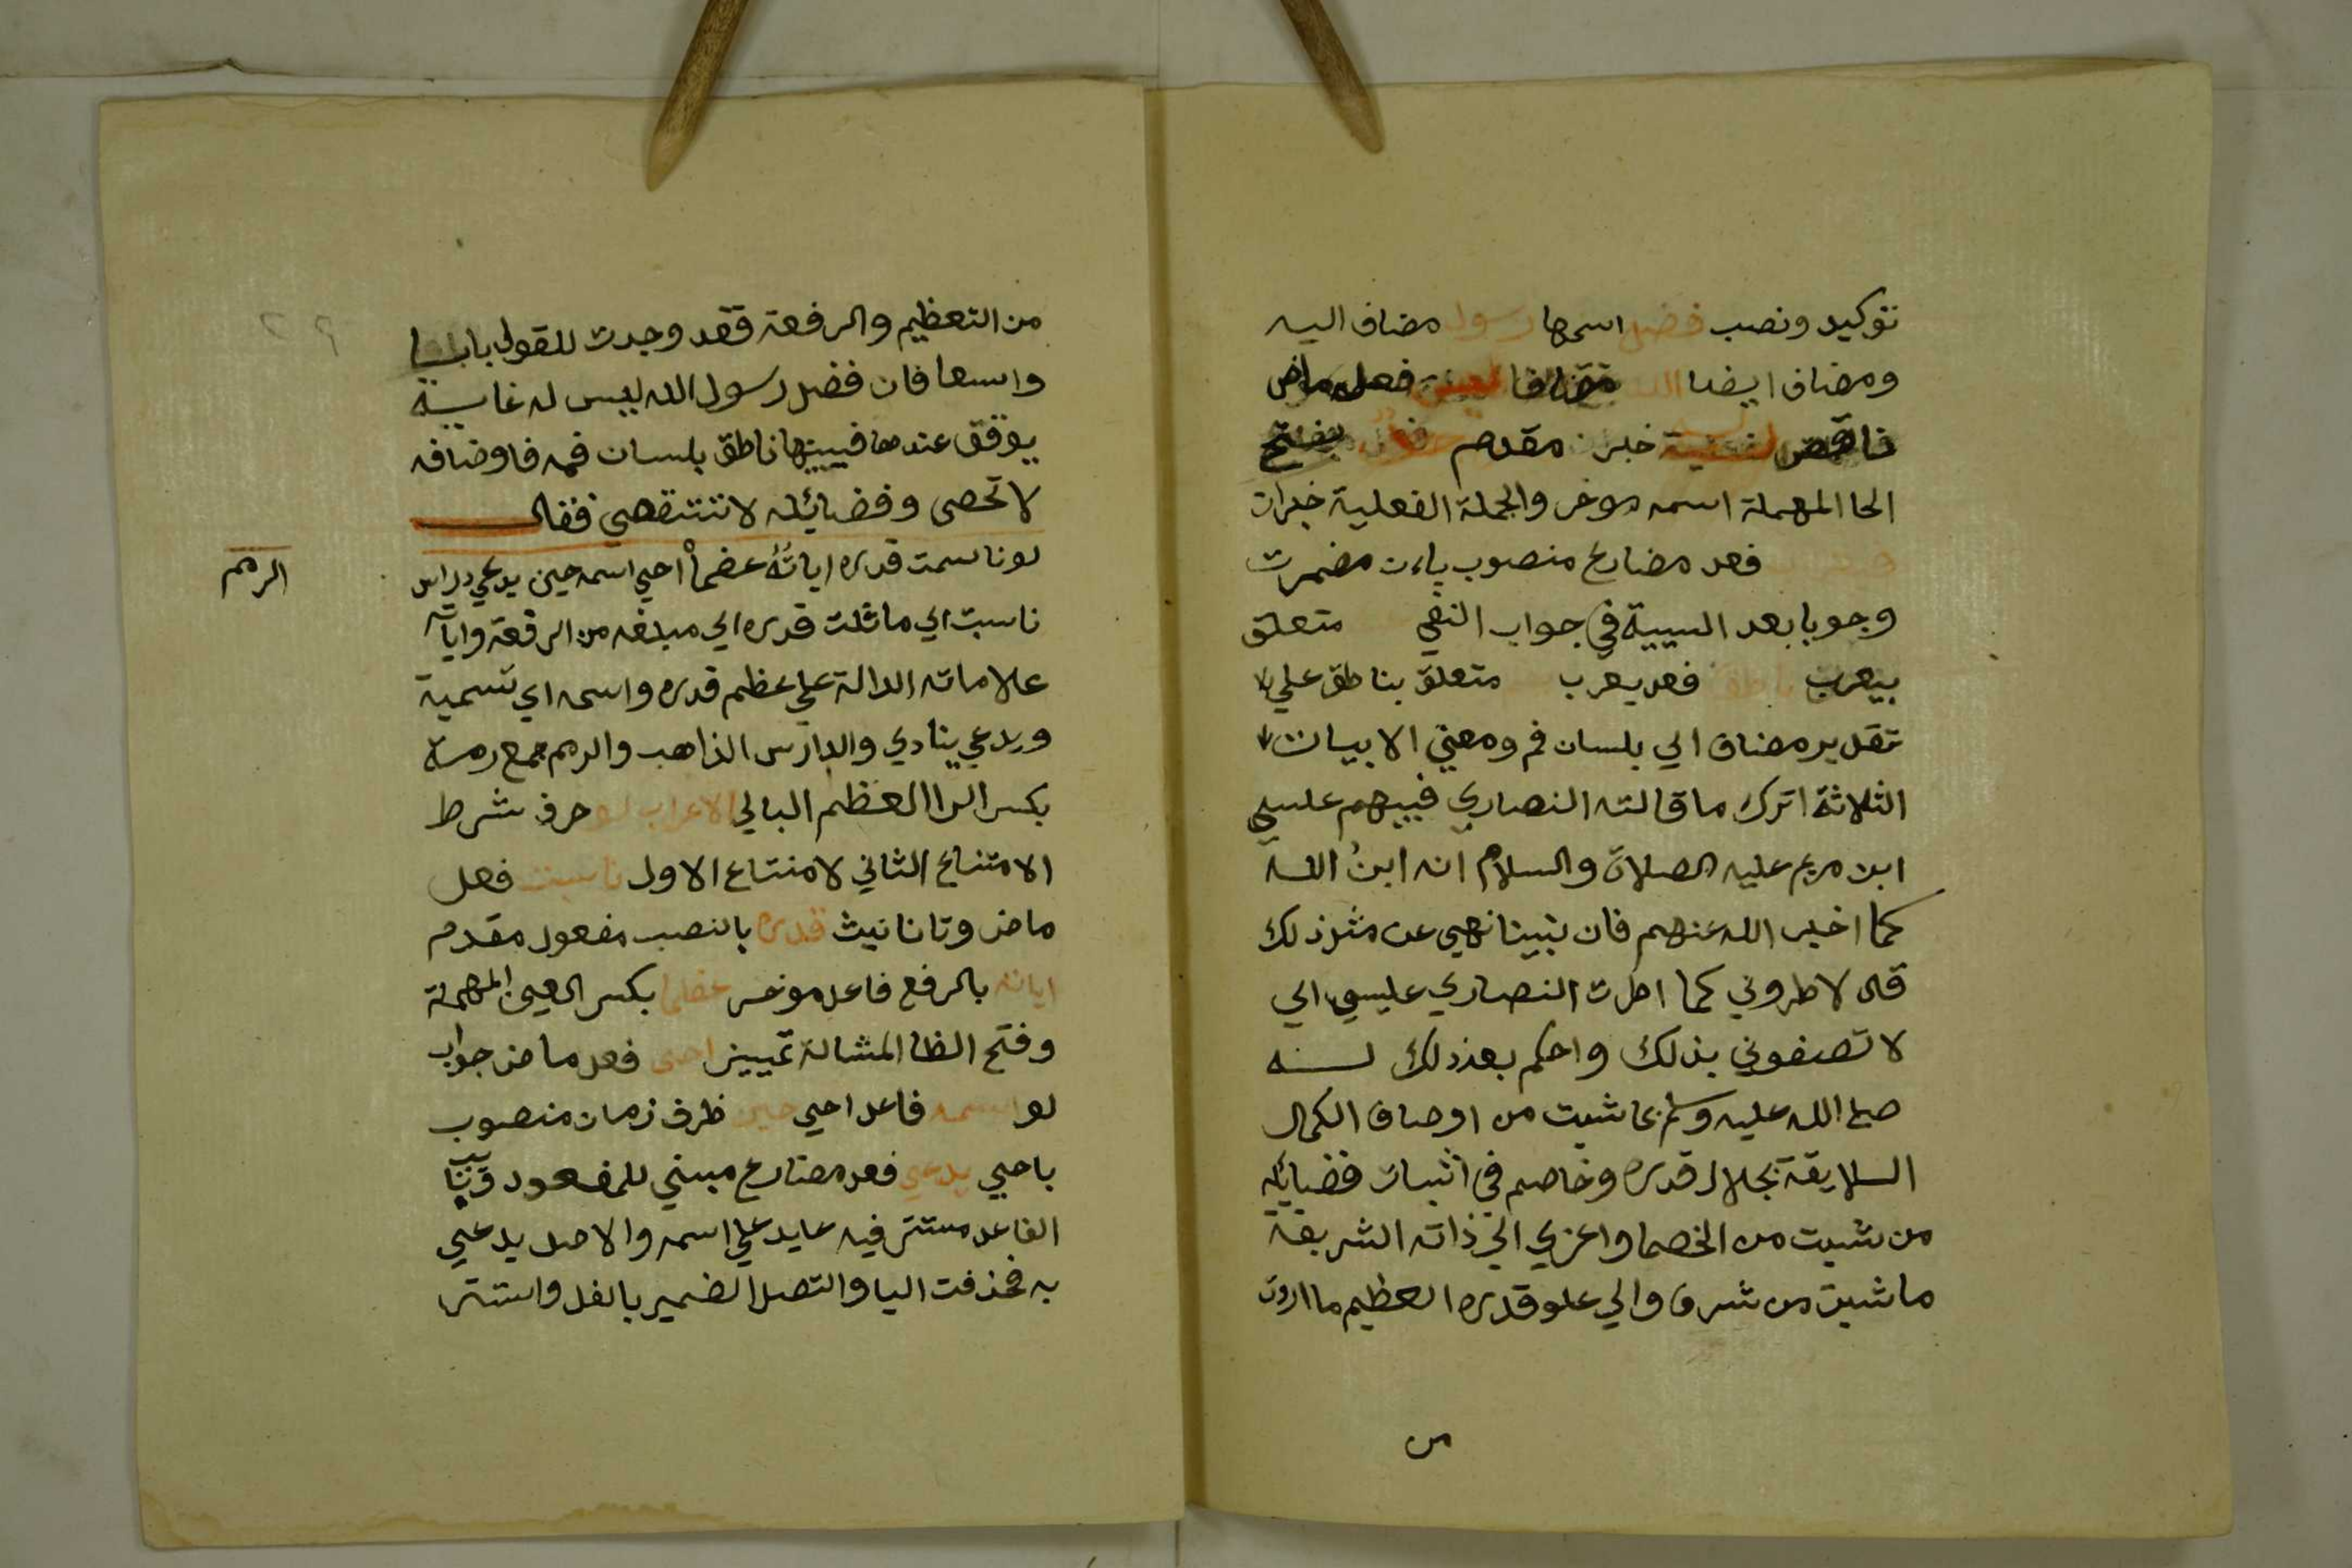 توكيد ونصب فضل اسمها رسول مضاف اليه
ومضاف ايضا الله مضاف فعل ماض
ناقص خبرن مقدم بفتح
الحا المهملة اسمه موخر والجملة الفعلية خبران
فعل مضارع منصوب بان مضمرت
وجوبا بعد السببية في جواب النفي متعلق
بيعرب ناطق فعل يعرب متعلق بناطق علي
تقدير مضاف الي بلسان فم ومعني الابيات
الثلاثة اترك ما قالته النصاري فيبيهم عليسي
ابن مريم عليه الصلاة والسلام انه ابن الله
كما اخبر الله عنهم فان نبينا نهي عن مثل ذلك
قال لا طروني كما اطرت النصاري عليسي اي
لا تصفوني بذلك واحكم بعد ذلك لسنه
صلي الله عليه وسلم بما شيت من اوصاف الكمال
السلايقة بجلال قدره وخاصم في اثبات فضايله
من شيت من الخصما واعزي الي ذاته الشريفة
ما شيت من شرف والي علو قدره العظيم ما اردت
من
من التعظيم والرفعة فقد وجدت للقول بابا
واسعا فان فضل رسول الله ليس له غاية
يوقف عندها فيبينها ناطق بلسان فمه فاوضافه
لا تحصى وفضايله لا تنتقصي فقال
لو ناسمت قدره اياته عضما احيي اسمه حين يدعي دراس
الرمم
ناسبت اي ماثلت قدره اي مبلغه من الرفعة واياته
علاماته الدالة علي عظم قدره واسمه اي تسمية
ويدعي ينادي والدارس الذاهب والرمم جمع رمة
بكسر الرا العظم البالي الاعراب لو حرف شرط
الامتناع الثاني لامتناع الاول ناسبت فعل
ماض وتا تانيث قدره بالنصب مفعول مقدم
اياته بالرفع فاعل موخر عظما بكسر العين المهملة
وفتح الظا المشالة تمييز احيي فعل ماض جواب
لو اسمه فاعل احيي حين ظرف زمان منصوب
باحيي يدعي فعل مضارع مبني للمفعول
الفاعل مستتر فيه عايد علي اسمه والاصل يدعي
به فحذفت اليا والتصل الضمير بالفل واستتر